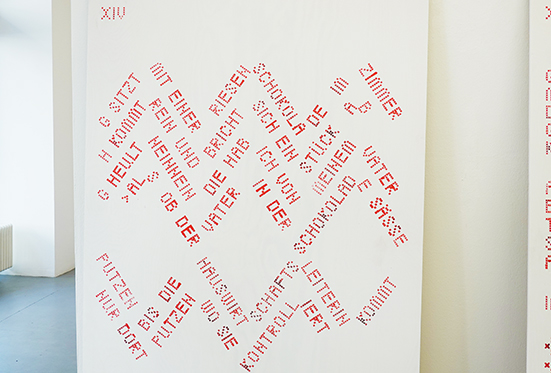 XIV
G SITZT MIT EINER RIESEN SCHOKOLADE IM ZIMMER
H KOMMT REIN UND BRICHT SICH EIN STÜCK AB
G HEULT NEINNEIN DIE HAB ICH VON MEINEM VATER
›ALS OB DER VATER IN DER SCHOKOLADE SÄSSE
PUTZEN BIS DIE HAUSWIRTSCHAFTSLEITERIN KOMMT
NUR DORT PUTZEN WO SIE KONTROLLIERT